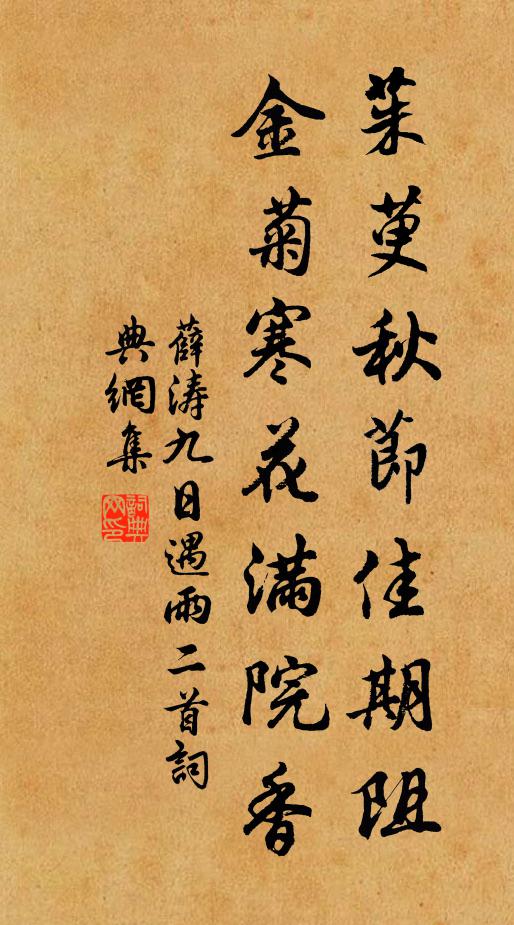 茱萸秋節佳期阻
金菊寒花滿院香
薛濤九日遇雨二首詞
典網集
詞典網印